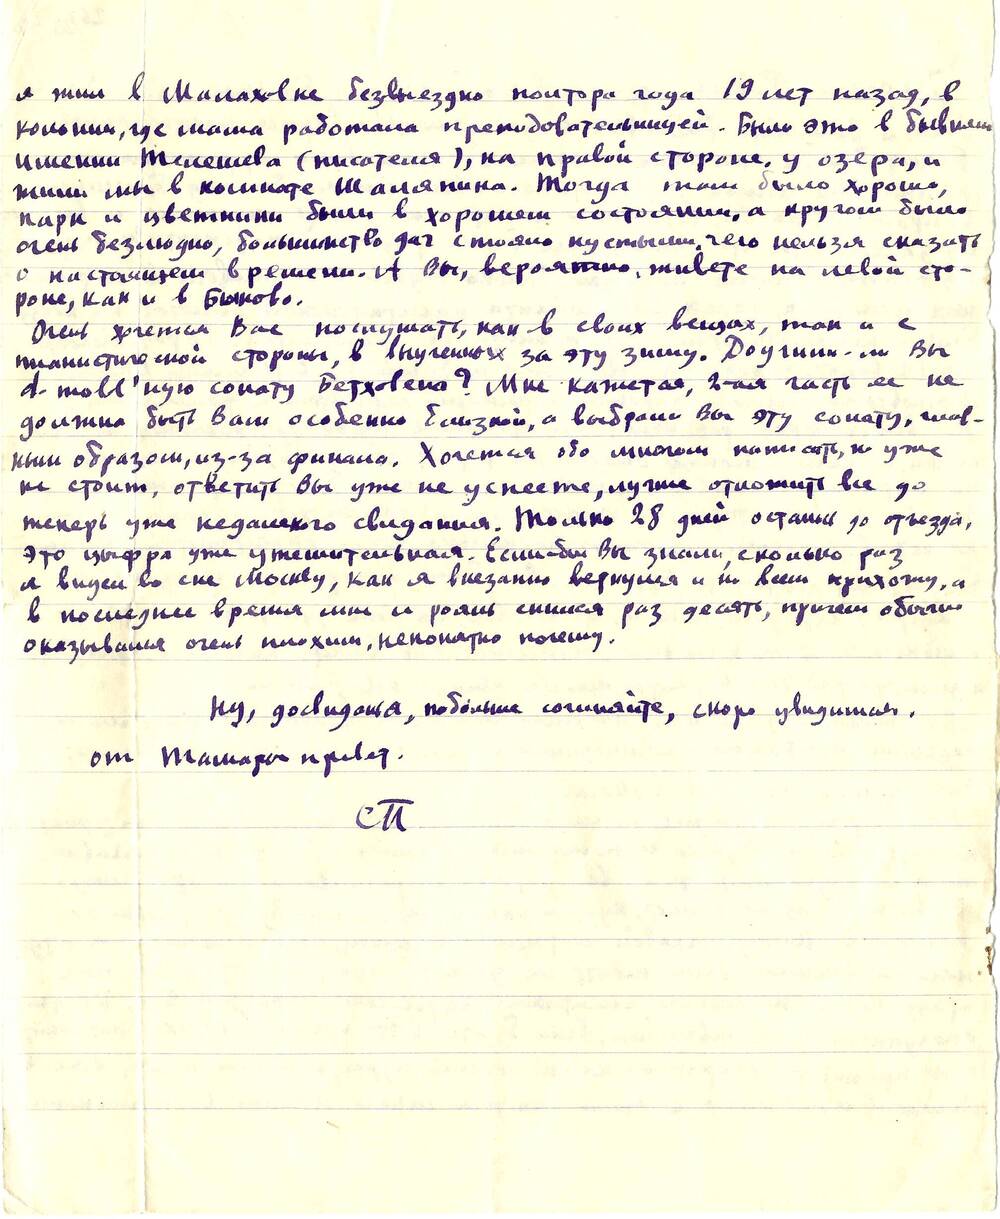 я жил в Малаховке безвыездно полтора года 19 лет назад, в
колонии, где мама работала преподовательницей. Было это в бывшем
имении Телешева (писателя), на правой стороне, у озера, и
жили мы в комнате Шаляпина. Тогда там было хорошо,
парк и цветники были в хорошем состоянии, а кругом было
очень безлюдно, большинство дач стояло пустыми, чего нельзя сказать
о настоящем времени. А Вы, вероятно, живете на левой сто-
роне, как и в Быково.
Очень хочется Вас послушать, как в своих вещах, так и с
пианистической стороны, в выученных за эту зиму. Доучили-ли Вы
d-moll'ную сонату Бетховена? Мне кажется, 2-ая часть ее не
должна быть Вам особенно близкой, а выбрали Вы эту сонату, глав-
ным образом, из-за финала. Хочется обо многом написать, но уже
не стоит, ответить Вы уже не успеете, лучше отложить все до
теперь уже недалекого свидания. Только 28 дней осталось до отъезда,
это цыфра уже утешительная. Если-бы Вы знали, сколько раз
я видел во сне Москву, как я внезапно вернулся и ко всем прихожу, а
в последнее время мне и рояль снился раз десять, причем обычно
оказывался очень плохим, непонятно почему.
Ну, досвиданья, побольше сочиняйте, скоро увидимся.
от Тамары привет.
СП